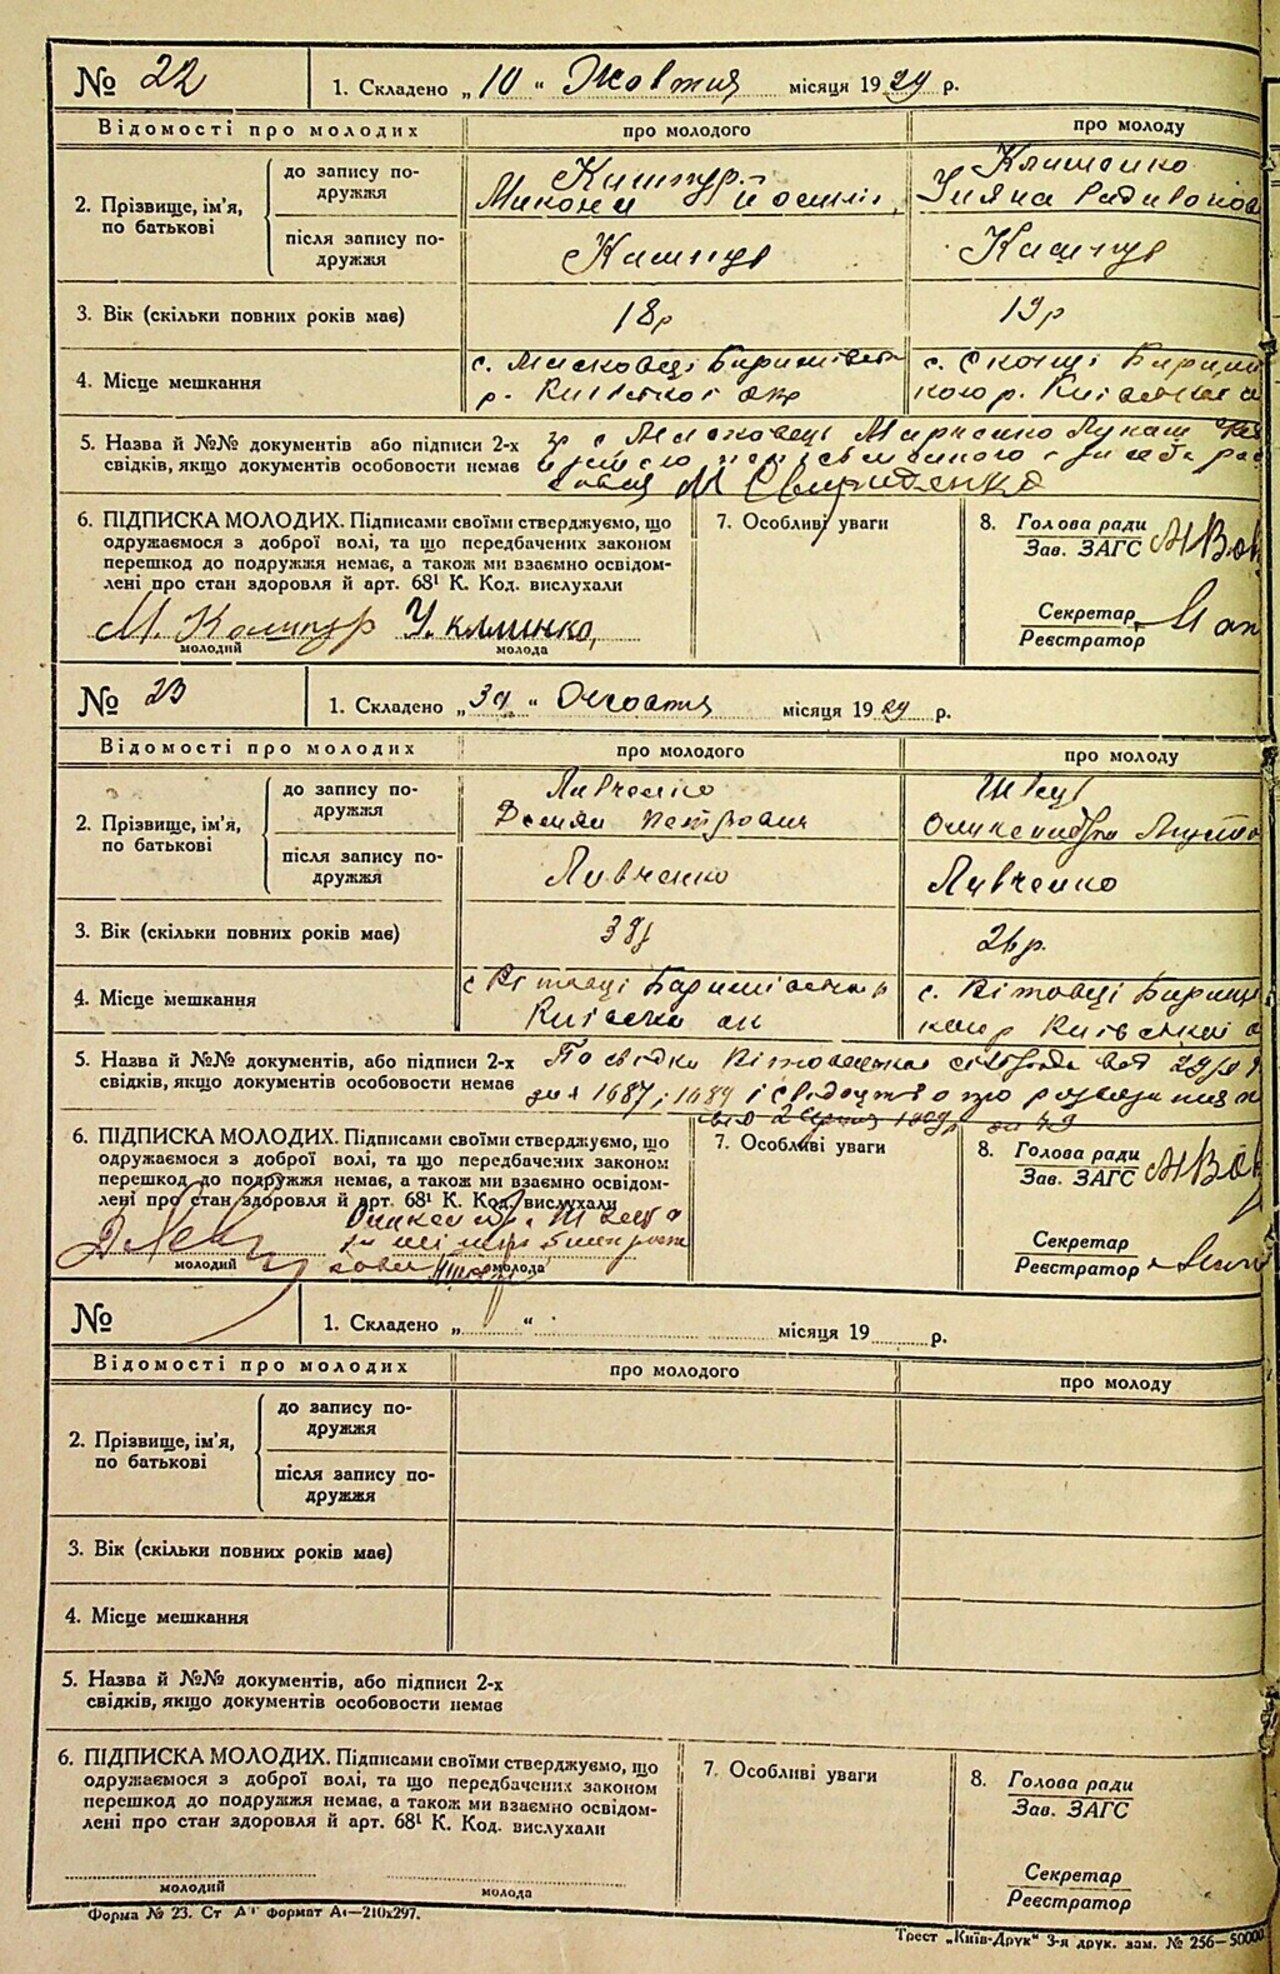 № 22
1. Складено „10“ Жовтня місяця 1929 р.
Відомості про молодих
про молодого
про молоду
2. Прізвище, ім'я, по батькові
до запису подружжя
Кашпур
Микола
Клименко
Уляна Радивонов
після запису подружжя
Кашпур
Кашпур
3. Вік (скільки повних років має)
18р
19р
4. Місце мешкання
с. Масковці Баришівськ
р. Київської окр
с. Скопці Бариш
кого р. Київської о
5. Назва й №№ документів або підписи 2-х
свідків, якщо документів особовости немає
с Масковець Марченко Лукаш
М Свириденко
6. ПІДПИСКА МОЛОДИХ. Підписами своїми стверджуємо, що
одружаємося з доброї волі, та що передбачених законом
перешкод до подружжя немає, а також ми взаємно освідом-
лені про стан здоровля й арт. 68¹ К. Код. вислухали
М. Кашпур У. клименко,
молодий
молода
7. Особливі уваги
8. Голова ради
Зав. ЗАГС
Секретар
Реєстратор
№ 23
1. Складено „30“ Жовтня місяця 1929 р.
Відомості про молодих
про молодого
про молоду
2. Прізвище, ім'я,
по батькові
до запису по-
дружжя
Ливченко
Демян Петрович
Швець
Олександра
після запису по-
дружжя
Ливченко
Ливченко
3. Вік (скільки повних років має)
26р.
4. Місце мешкання
с Вітовці Баришівськ р
Київськ ок
с. Вітовці Бариш
кого р Київської о
5. Назва й №№ документів, або підписи 2-х
свідків, якщо документів особовости немає
Посвідки Вітовецької сільради від
за № 1687 і 1689 і свідоцтво про розвязання
6. ПІДПИСКА МОЛОДИХ. Підписами своїми стверджуємо, що
одружаємося з доброї волі, та що передбачених законом
перешкод до подружжя немає, а також ми взаємно освідом-
лені про стан здоровля й арт. 68¹ К. Код. вислухали
молодий
молода
7. Особливі уваги
8. Голова ради
Зав. ЗАГС
Секретар
Реєстратор
№
1. Складено „ “ місяця 19 р.
Відомості про молодих
про молодого
про молоду
2. Прізвище, ім'я,
по батькові
до запису по-
дружжя
після запису по-
дружжя
3. Вік (скільки повних років має)
4. Місце мешкання
5. Назва й №№ документів, або підписи 2-х
свідків, якщо документів особовости немає
6. ПІДПИСКА МОЛОДИХ. Підписами своїми стверджуємо, що
одружаємося з доброї волі, та що передбачених законом
перешкод до подружжя немає, а також ми взаємно освідом-
лені про стан здоровля й арт. 68¹ К. Код. вислухали
молодий
молода
7. Особливі уваги
8. Голова ради
Зав. ЗАГС
Секретар
Реєстратор
Форма № 23. Ст А⁴ формат А₄—210х297.
Трест „Київ-Друк“ 3-я друк. зам. № 256—50000